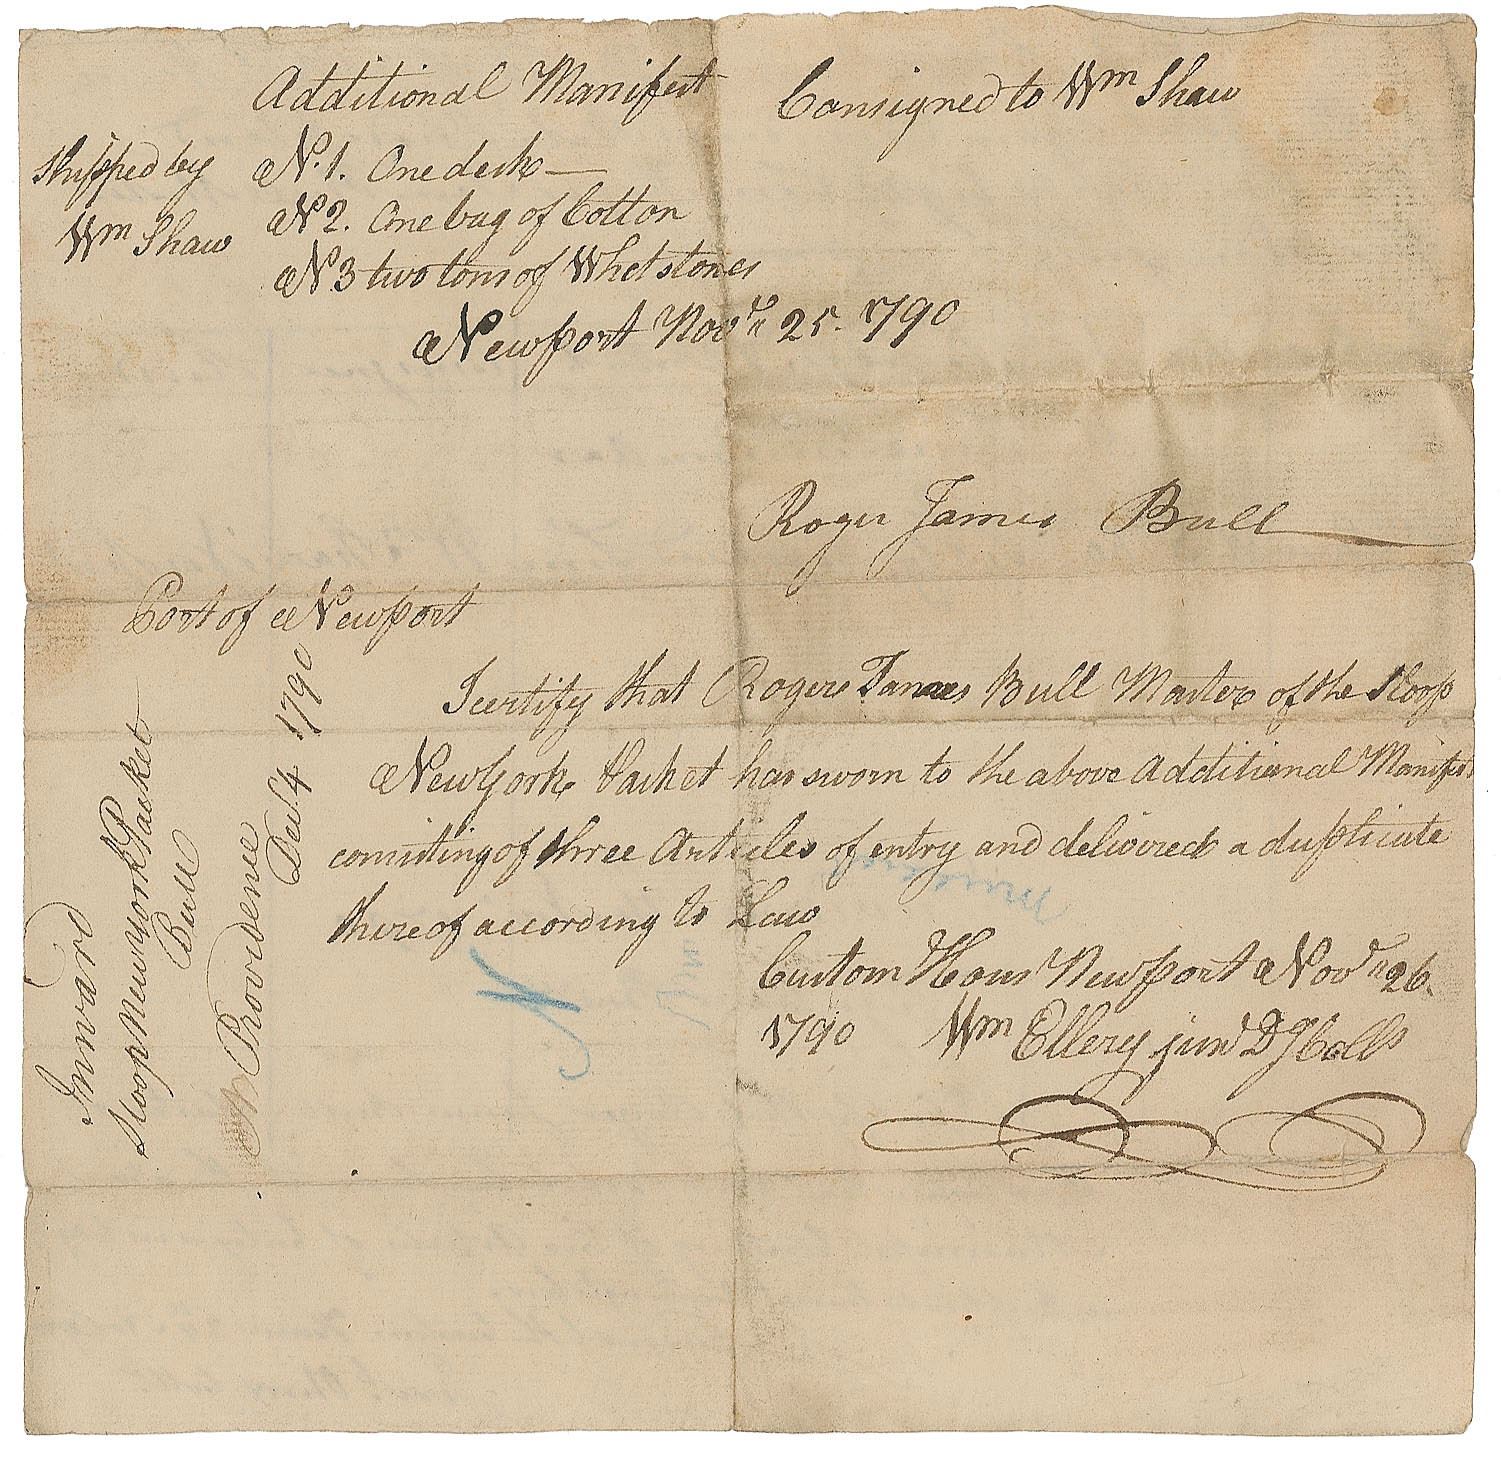 Additional Manifest
Consigned to Wm Shaw
Shipped by
Wm Shaw
N.1. One desk —
N2. One bag of Cotton
N.3 two tons of Whetstones
Newport Novr 25. 1790
Roger James Bull
Port of Newport
I certify that Roger James Bull Master of the Sloop
New York Packet has sworn to the above Additional Manifest
consisting of three Articles of entry and delivered a duplicate
thereof according to Law
Custom Hous Newport Novr 26
1790 Wm Ellery junr D Colls
Inward
Sloop New York Packet
Bull
Providence
Decr 4 1790